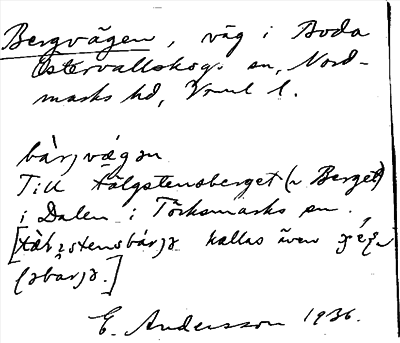 Bergvägen, väg i Boda
Östervallskogs sn, Nord-
marks hd, Vrml l.
bàrjvägən
Till Tälgstensberget (~ Berget)
i Dalen i Töcksmarks sn.
kallas även
E. Andersson 1936.